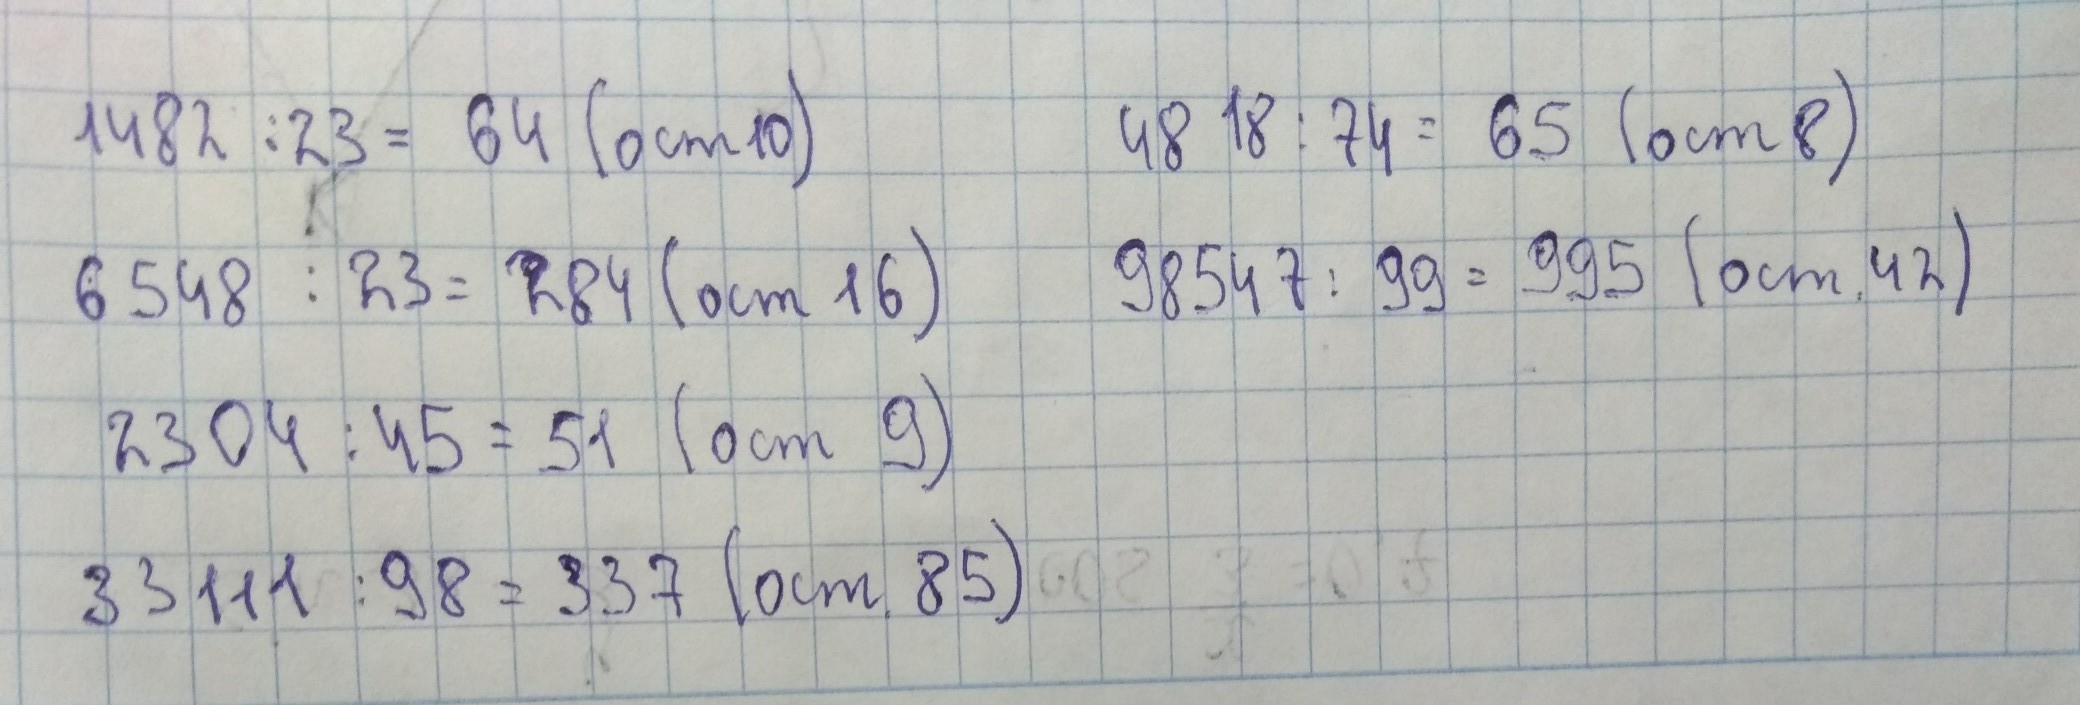 1482 :23= 64 (ост 10)
6548 : 23= 284 (ост 16)
2304 :45= 51 (ост 9)
33111 :98= 337 (ост. 85)
4818:74= 65 (ост 8)
98547: 99= 995 (ост. 42)